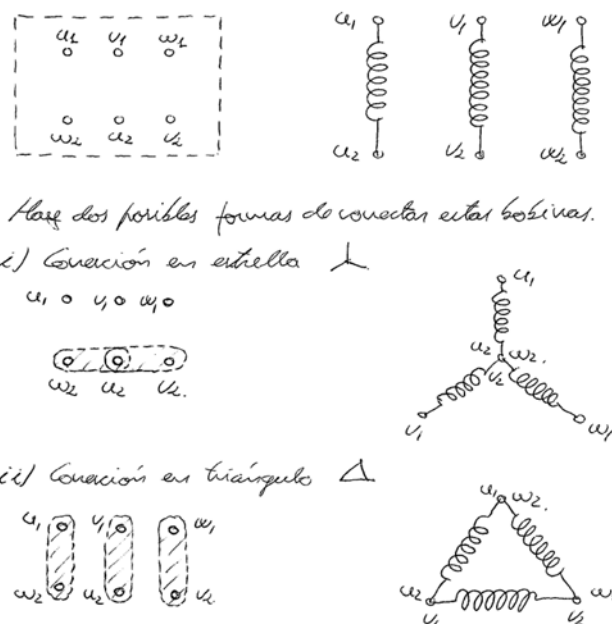 u1 v1 w1
w2 u2 v2
u1 v1 w1
u2 v2 w2
Hay dos posibles formas de conectar estas bobinas.
i) Conexión en estrella
u1 v1 w1
w2 u2 v2.
u1
u2 w2.
v2
v1 w1
ii) Conexión en triángulo
u1 v1 w1
w2 u2 v2
u1 w2.
u2 w
v1 v2